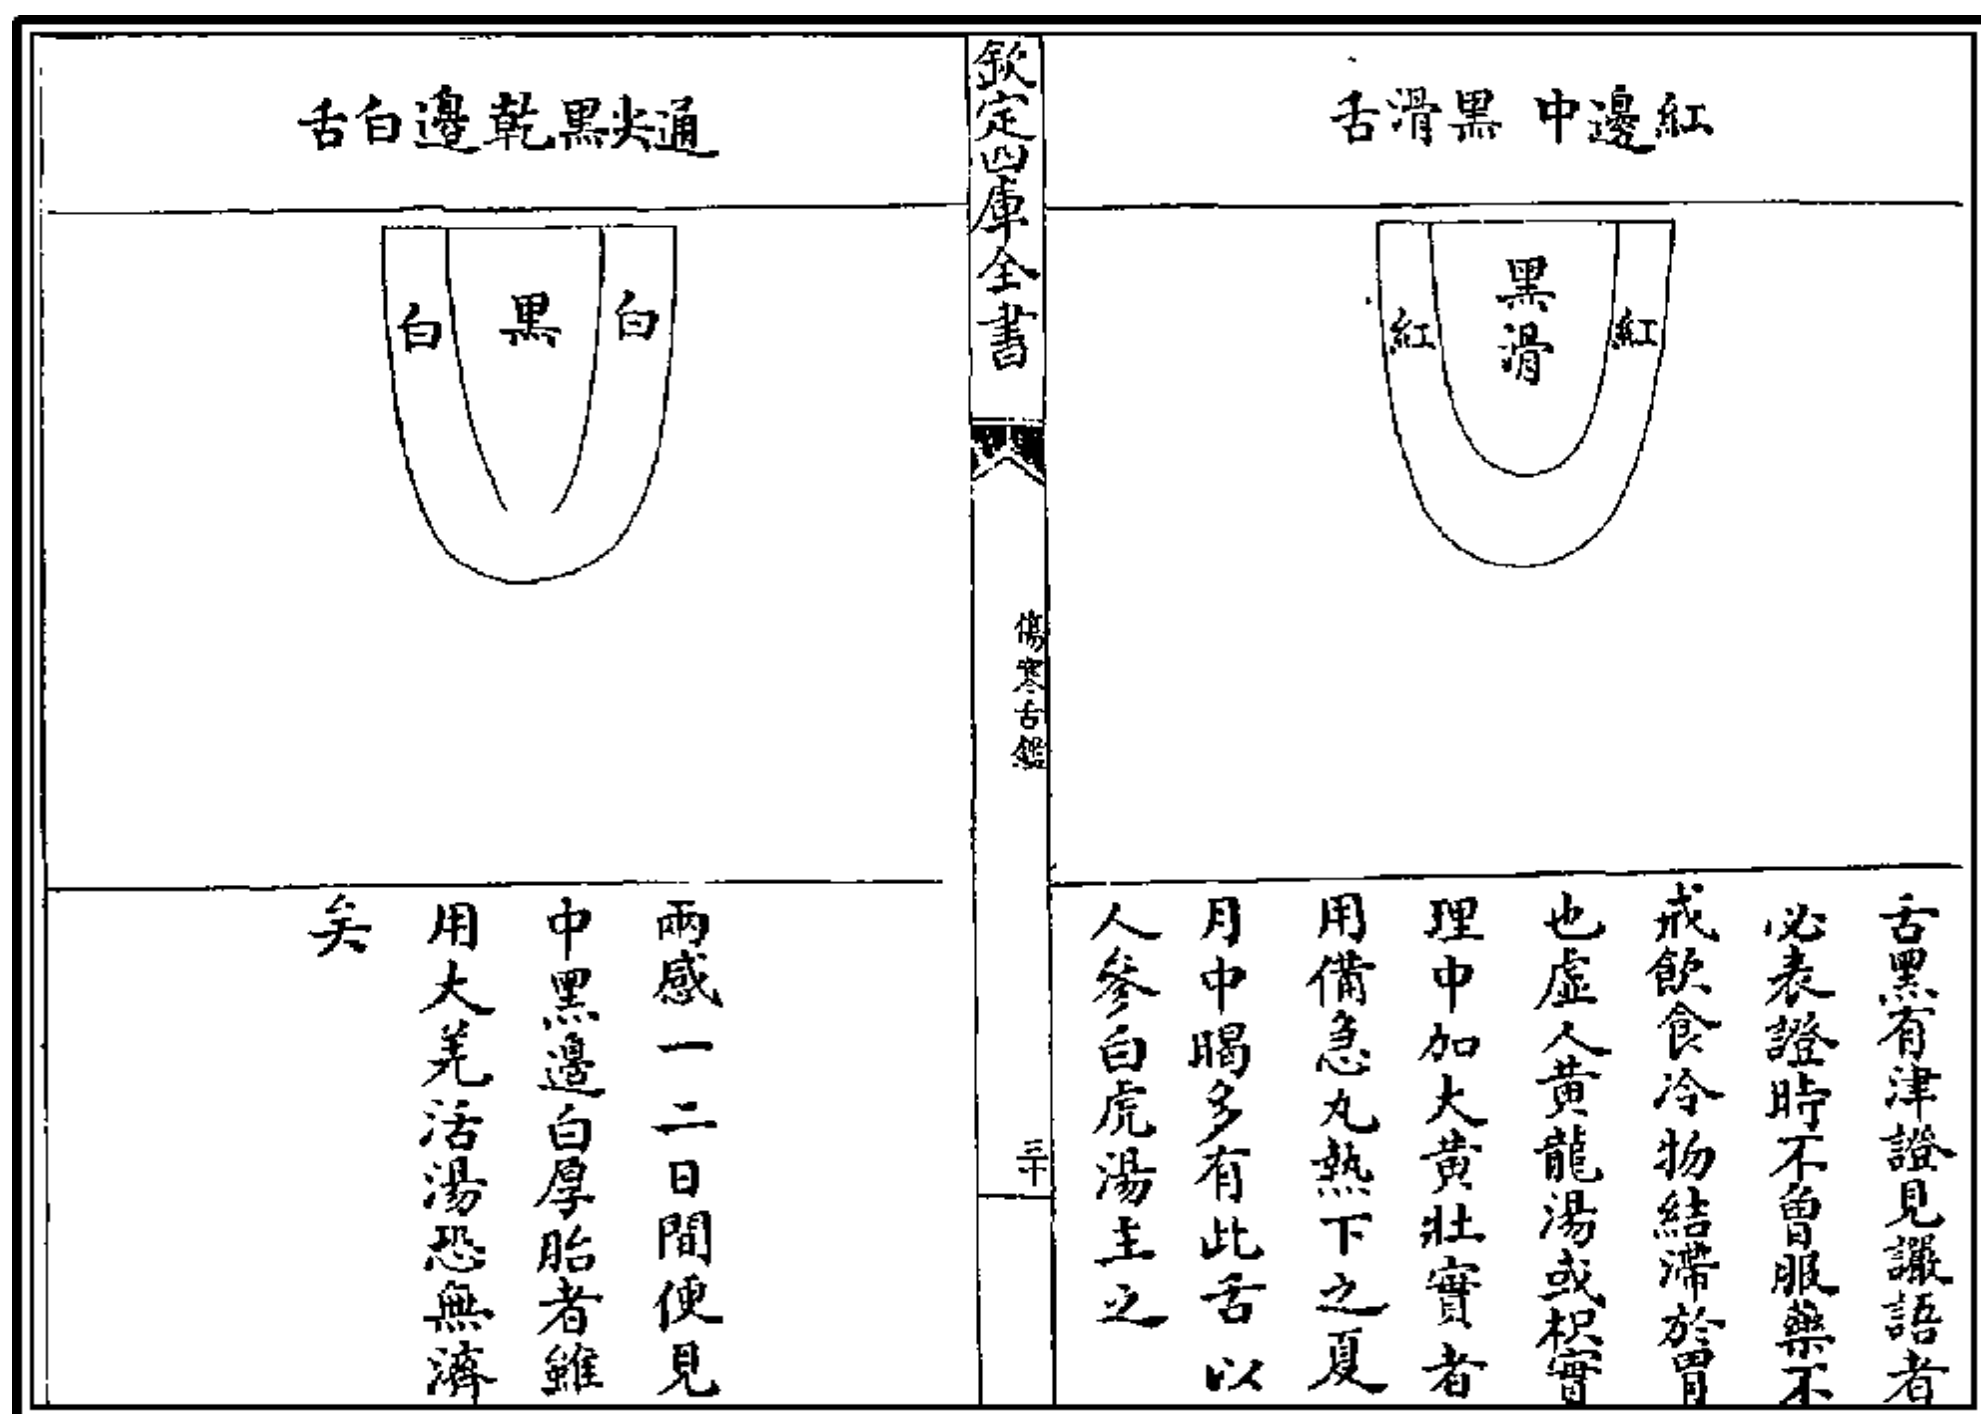 紅邊中黑滑舌
黑滑
紅
紅
舌黑有津證見讝語者
必表證時不曾服藥不
戒飲食冷物結滯於胃
也虛人黃龍湯或枳實
理中加大黃壯實者
用備急丸熱下之夏
月中暍多有此舌以
人參白虎湯主之
欽定四庫全書
傷寒舌鑑
三十
通尖黑乾邊白舌
白
黑
白
兩感一二日間便見
中黑邊白厚胎者雖
用大羌活湯恐無濟
矣